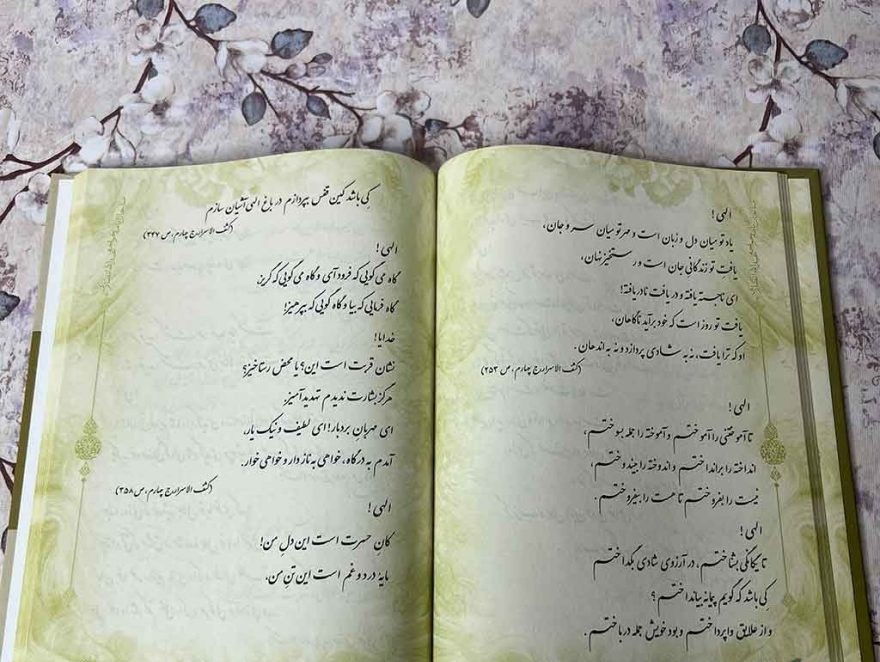 الهی!
یاد تو میان دل و زبان است و مهر تو میان سر و جان،
یافت تو زندگانی جان است و رستخیز نهان،
ای ناجسته یافته و دریافت نادریافته!
یافت تو روز است که خود برآید ناگاهان،
او که ترا یافت، نه به شادی پردازد و نه به اندهان.
(کشف الاسرار، ج چهارم، ص ۲۵۳)
الهی!
تا آموختنی را آموختم و آموخته را جمله بسوختم،
انداخته را برانداختم و اندوخته را بیندوختم،
نیست را بفروختم تا هست را بیفروختم.
الهی!
تا یگانگی بشناختم، در آرزوی شادی بگداختم
کِی باشد که گویم پیمانه بینداختم؟
و از علایق واپرداختم و بود خویش جمله درباختم.
کِی باشد کین قفس بپردازم در باغ الهی آشیان سازم
(کشف الاسرار، ج چهارم، ص ۳۳۷)
الهی!
گاه می گویی که فرود آی و گاه می گویی که گریز
گاه فرمایی که بیا و گاه گویی که بپرهیز!
خدایا!
نشان قربت است این؟ یا محض رستاخیز؟
هرگز بشارت ندیدم تهدیدآمیز.
ای مهربانِ بردبار! ای لطیف و نیک یار.
آمدم به درگاه، خواهی به ناز دار و خواهی خوار.
(کشف الاسرار، ج چهارم، ص ۳۵۸)
الهی!
کانِ حسرت است این دلِ من!
مایهٔ درد و غم است این تنِ من.